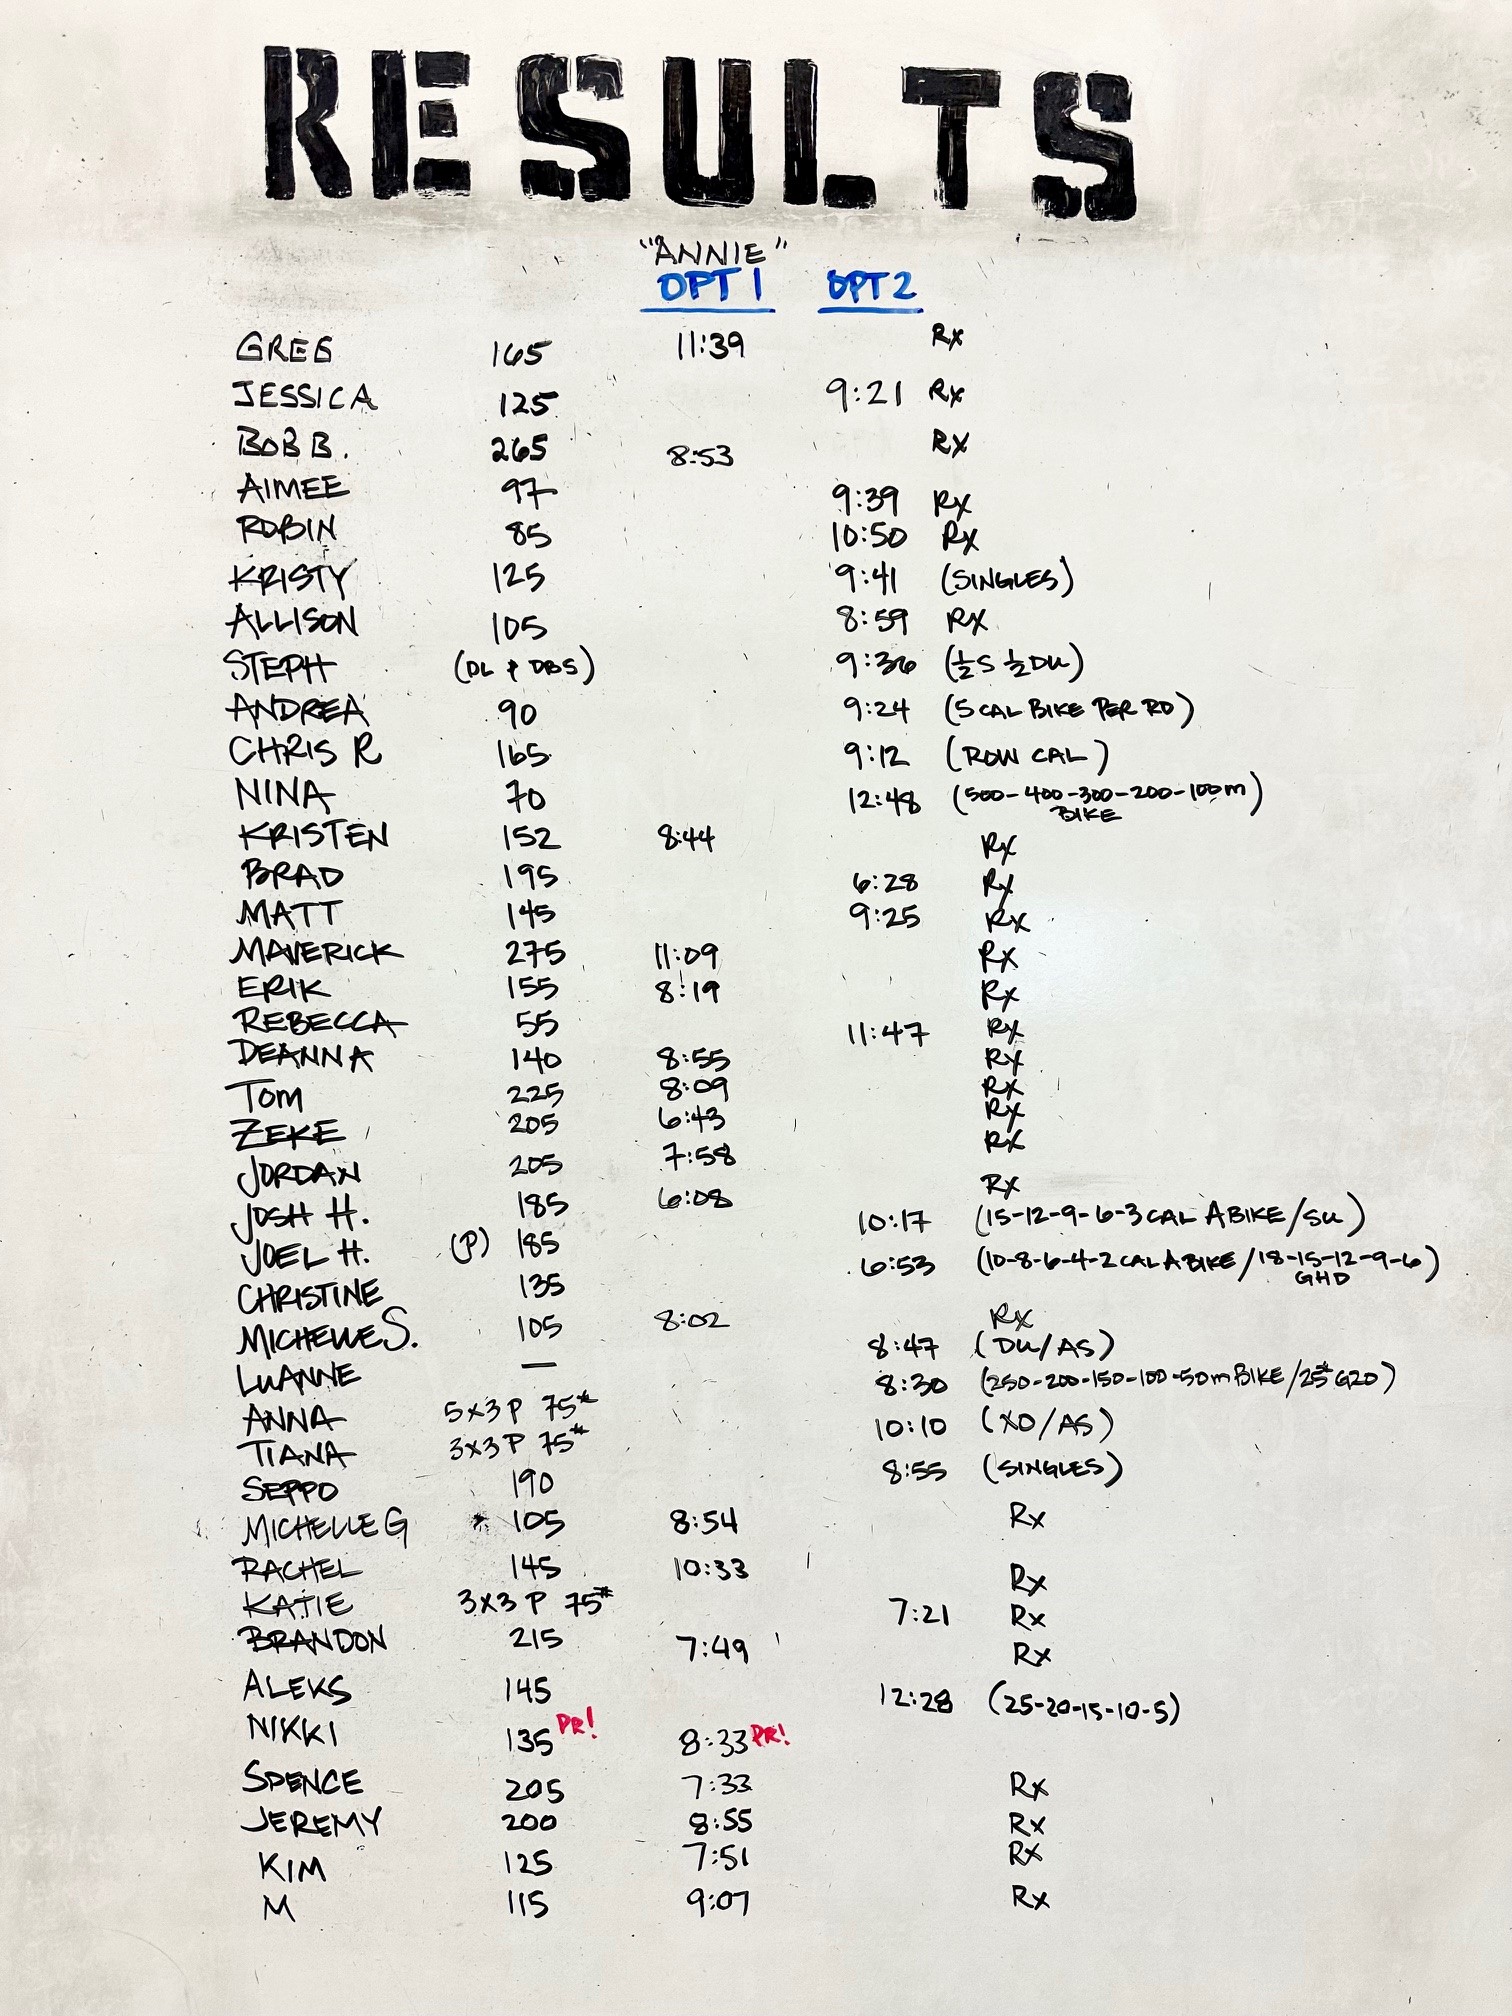 RESULTS
"ANNIE"
OPT 1 OPT 2
GREG 165 11:39 Rx
JESSICA 125 9:21 Rx
BOB B. 265 8:53 Rx
AIMEE 97 9:39 Rx
ROBIN 85 10:50 Rx
KRISTY 125 9:41 (SINGLES)
ALLISON 105 8:59 Rx
STEPH (DL & DBS) 9:36 (½S ½DU)
ANDREA 90 9:24 (5 CAL BIKE PER RD)
CHRIS R 165 9:12 (ROW CAL)
NINA 70 12:48 (500-400-300-200-100m)
BIKE
KRISTEN 152 8:44 Rx
BRAD 195 6:28 Rx
MATT 145 9:25 Rx
MAVERICK 275 11:09 Rx
ERIK 155 8:19 Rx
REBECCA 55 11:47 Rx
DEANNA 140 8:55 Rx
TOM 225 8:09 Rx
ZEKE 205 6:43 Rx
JORDAN 205 7:58 Rx
JOSH H. 185 6:08 Rx
JOEL H. (P) 185 10:17 (15-12-9-6-3 CAL ABIKE/SU)
CHRISTINE 135 6:53 (10-8-6-4-2 CAL ABIKE/18-15-12-9-6)
GHD
MICHELLE S. 105 8:02 Rx
LUANNE — 8:47 (DU/AS)
ANNA 5x3 P 75# 8:30 (250-200-150-100-50m BIKE/25# G2O)
TIANA 3x3 P 75# 10:10 (XO/AS)
SEPPO 190 8:55 (SINGLES)
MICHELLE G 105 8:54 Rx
RACHEL 145 10:33 Rx
KATIE 3x3 P 75# 7:21 Rx
BRANDON 215 7:49 Rx
ALEKS 145 12:28 (25-20-15-10-5)
NIKKI 135 PR! 8:33 PR!
SPENCE 205 7:33 Rx
JEREMY 200 8:55 Rx
KIM 125 7:51 Rx
M 115 9:07 Rx